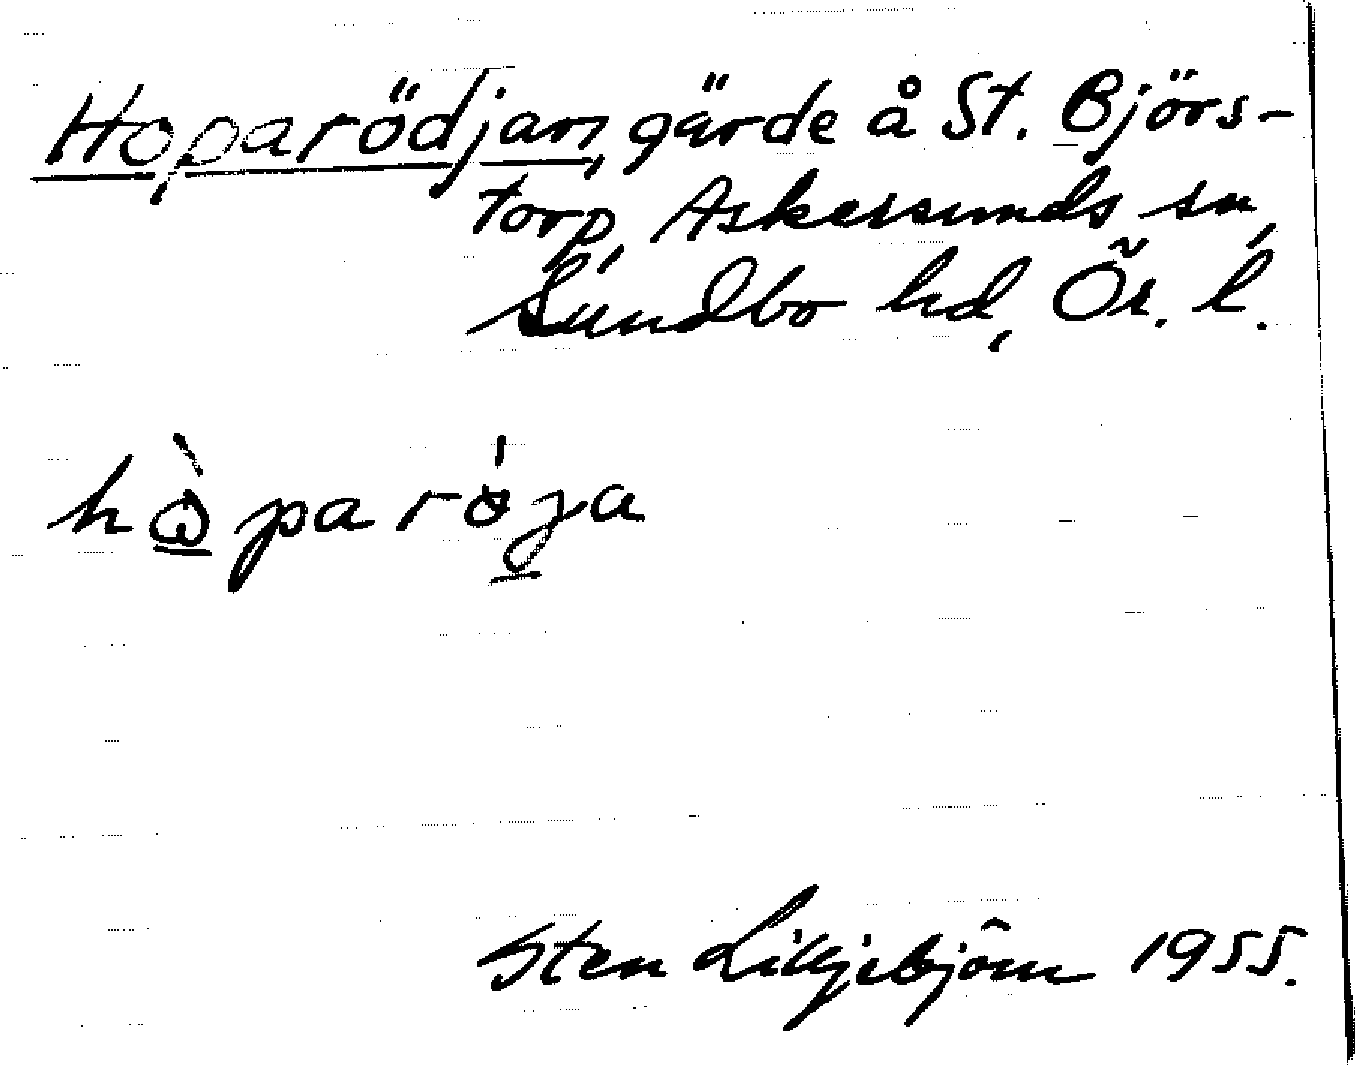 Hoparödjan, gärde å St. Björs-
torp, Askersunds sn,
Sundbo hd, Ör. l.
hòparöja
Sten Liljebjörn 1955.